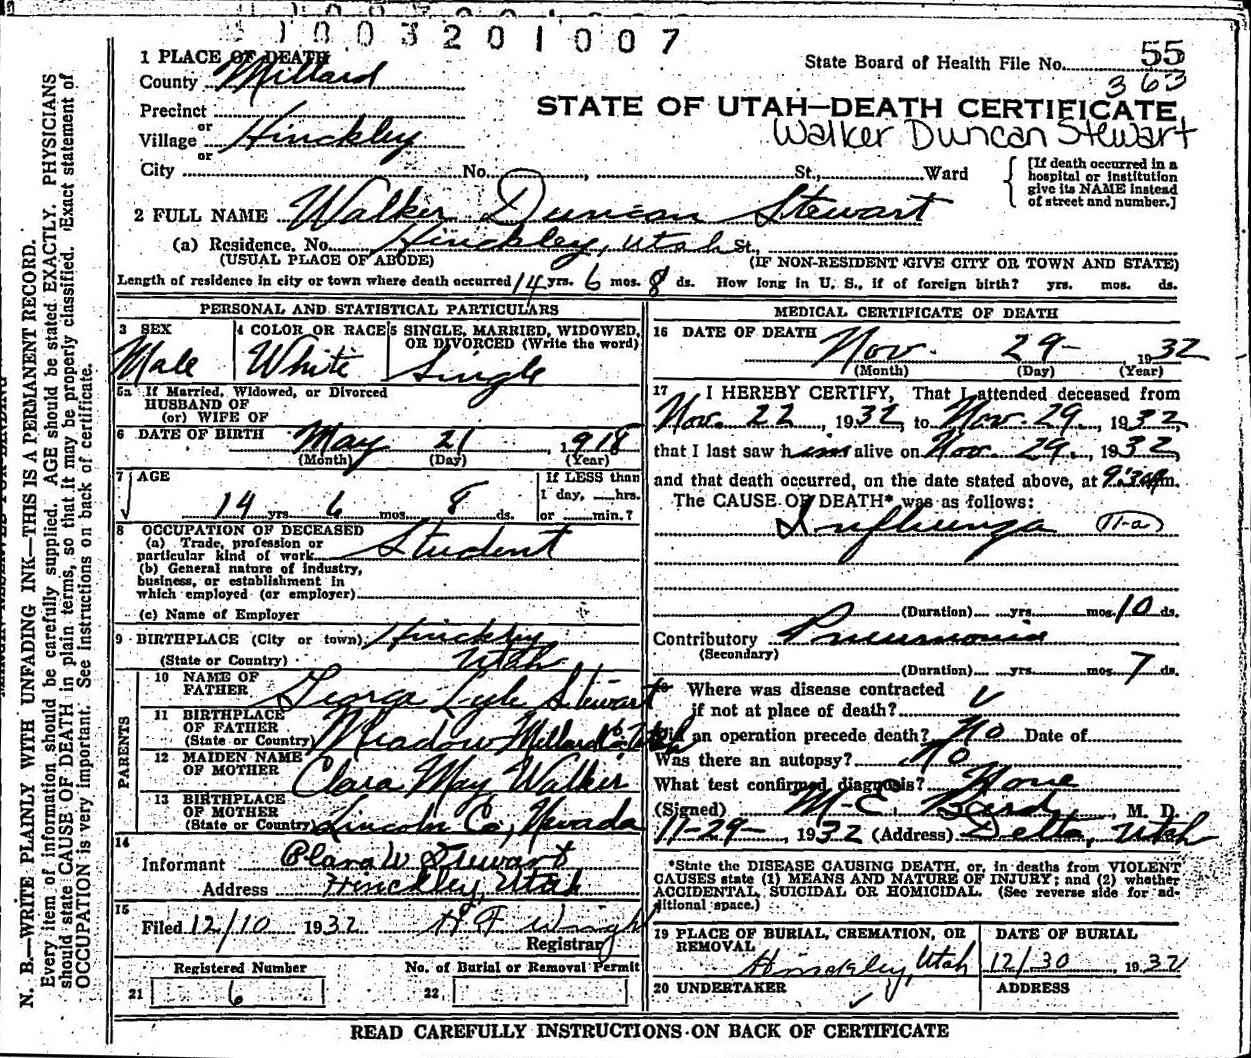 1003201007
State Board of Health File No. 55
363
STATE OF UTAH—DEATH CERTIFICATE
Walker Duncan Stewart
1 PLACE OF DEATH
County Millard
Precinct
or
Village Hinckley
or
City No. , St., Ward
[If death occurred in a
hospital or institution
give its NAME instead
of street and number.]
2 FULL NAME Walker Duncan Stewart
(a) Residence. No. Hinckley, Utah St.,
(USUAL PLACE OF ABODE) (IF NON-RESIDENT GIVE CITY OR TOWN AND STATE)
Length of residence in city or town where death occurred 14 yrs. 6 mos. 8 ds. How long in U. S., if of foreign birth? yrs. mos. ds.
PERSONAL AND STATISTICAL PARTICULARS
3 SEX
Male
4 COLOR OR RACE
White
5 SINGLE, MARRIED, WIDOWED,
OR DIVORCED (Write the word)
Single
5a If Married, Widowed, or Divorced
HUSBAND OF
(or) WIFE OF
6 DATE OF BIRTH May 21 1918
(Month) (Day) (Year)
7 AGE
14 yrs 6 mos. 8 ds.
If LESS than
1 day, hrs.
or min.?
8 OCCUPATION OF DECEASED
(a) Trade, profession or
particular kind of work Student
(b) General nature of industry,
business, or establishment in
which employed (or employer)
(c) Name of Employer
9 BIRTHPLACE (City or town) Hinckley
(State or Country) Utah
PARENTS
10 NAME OF
FATHER George Lyle Stewart
11 BIRTHPLACE
OF FATHER
(State or Country) Meadow Millard Co Utah
12 MAIDEN NAME
OF MOTHER Clara May Walker
13 BIRTHPLACE
OF MOTHER
(State or Country) Lincoln Co, Nevada
14
Informant Clara W Stewart
Address Hinckley, Utah
15
Filed 12/10 1932 H F Wright
Registrar
Registered Number No. of Burial or Removal Permit
21 6 22
MEDICAL CERTIFICATE OF DEATH
16 DATE OF DEATH
Nov. 29- 1932
(Month) (Day) (Year)
17 I HEREBY CERTIFY, That I attended deceased from
Nov. 22, 1932, to Nov. 29, 1932,
that I last saw him alive on Nov. 29, 1932,
and that death occurred, on the date stated above, at 9:30 m.
The CAUSE OF DEATH* was as follows:
Influenza 11-a
(Duration) yrs. mos. 10 ds.
Contributory Pneumonia
(Secondary)
(Duration) yrs. mos. 7 ds.
18 Where was disease contracted
if not at place of death?
Did an operation precede death? No Date of
Was there an autopsy? No
What test confirmed diagnosis? None
(Signed) M. E. Bird, M. D.
11-29-, 1932 (Address) Delta, Utah
*State the DISEASE CAUSING DEATH, or, in deaths from VIOLENT
CAUSES state (1) MEANS AND NATURE OF INJURY; and (2) whether
ACCIDENTAL, SUICIDAL OR HOMICIDAL. (See reverse side for ad-
ditional space.)
19 PLACE OF BURIAL, CREMATION, OR
REMOVAL
Hinckley, Utah
DATE OF BURIAL
12/30, 1932
20 UNDERTAKER
ADDRESS
READ CAREFULLY INSTRUCTIONS ON BACK OF CERTIFICATE
N. B.—WRITE PLAINLY WITH UNFADING INK—THIS IS A PERMANENT RECORD.
Every item of information should be carefully supplied. AGE should be stated EXACTLY. PHYSICIANS
should state CAUSE OF DEATH in plain terms, so that it may be properly classified. Exact statement of
OCCUPATION is very important. See instructions on back of certificate.